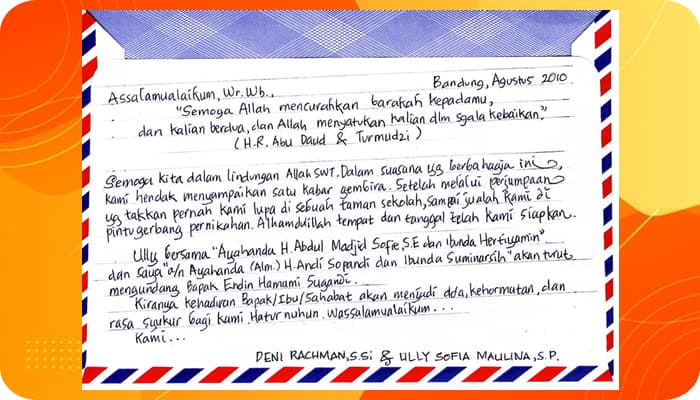 Bandung, Agustus 2010
Assalamualaikum, Wr. Wb.,
"Semoga Allah mencurahkan barakah kepadamu,
dan kalian berdua, dan Allah menyatukan kalian dlm sgala kebaikan."
(H.R. Abu Daud & Turmudzi)
Semoga kita dalam lindungan Allah SWT. Dalam suasana yg berbahagia ini,
kami hendak menyampaikan satu kabar gembira. Setelah melalui perjumpaan
yg takkan pernah kami lupa di sebuah taman sekolah, sampai jualah kami di
pintu gerbang pernikahan. Alhamdulilah tempat dan tanggal telah kami siapkan.
Ully bersama "Ayahanda H. Abdul Madjid Sofie, S.E dan Ibunda Herfiyamin"
dan saya "o/n Ayahanda (Alm.) H. Andi Sopandi dan Ibunda Suminarsih" akan turut
mengundang Bapak Endin Hamami Sugandi.
Kiranya kehadiran Bapak/Ibu/Sahabat akan menjadi doa, kehormatan, dan
rasa syukur bagi kami. Hatur nuhun. Wassalamualaikum...
Kami...
DENI RACHMAN, S.Si & ULLY SOFIA MAULINA, S.P.